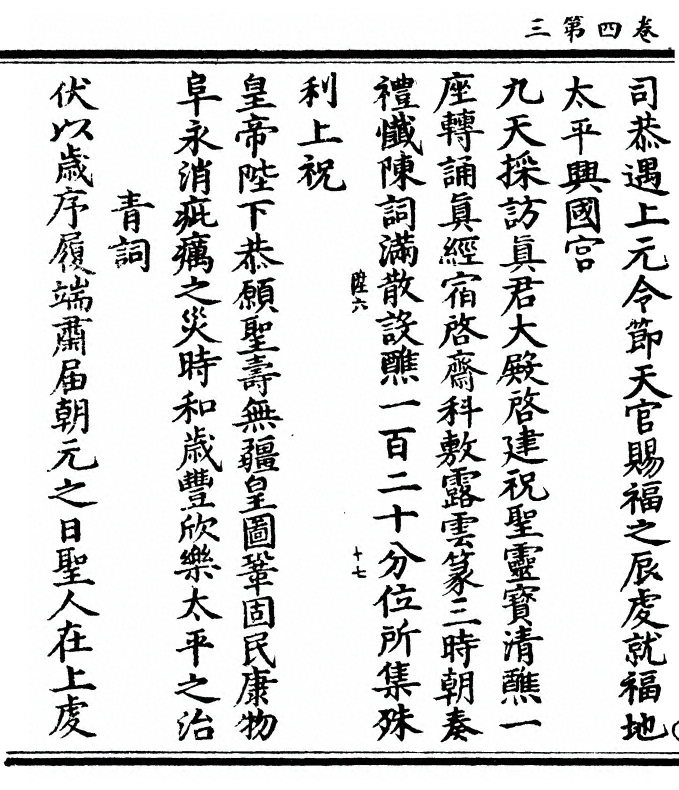 三第四卷
司恭遇上元令節天官賜福之辰虔就福地
太平興國宮
九天採訪眞君大殿啓建祝聖靈寶清醮一
座轉誦眞經宿啓齋科敷露雲篆三時朝奏
禮懺陳詞滿散設醮一百二十分位所集殊
陞六
十七
利上祝
皇帝陛下恭願聖壽無疆皇圖鞏固民康物
阜永消疵癘之災時和歲豐欣樂太平之治
青詞
伏以歲序履端肅届朝元之日聖人在上虔